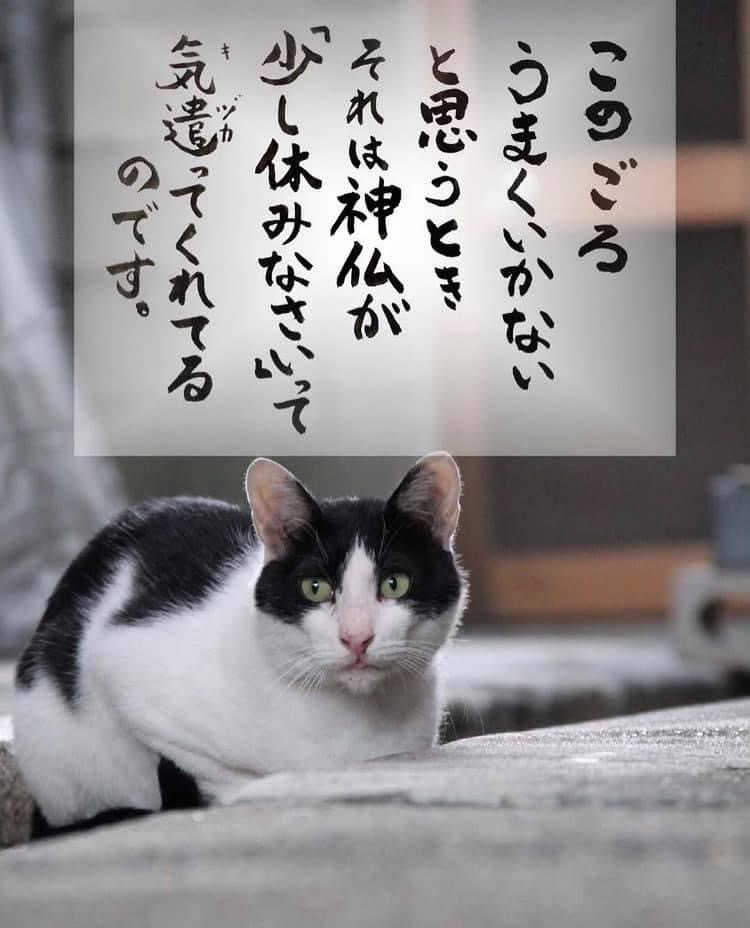 このごろ
うまくいかない
と思うとき
それは神仏が
「少し休みなさい」って
気遣ってくれてる
キヅカ
のです。